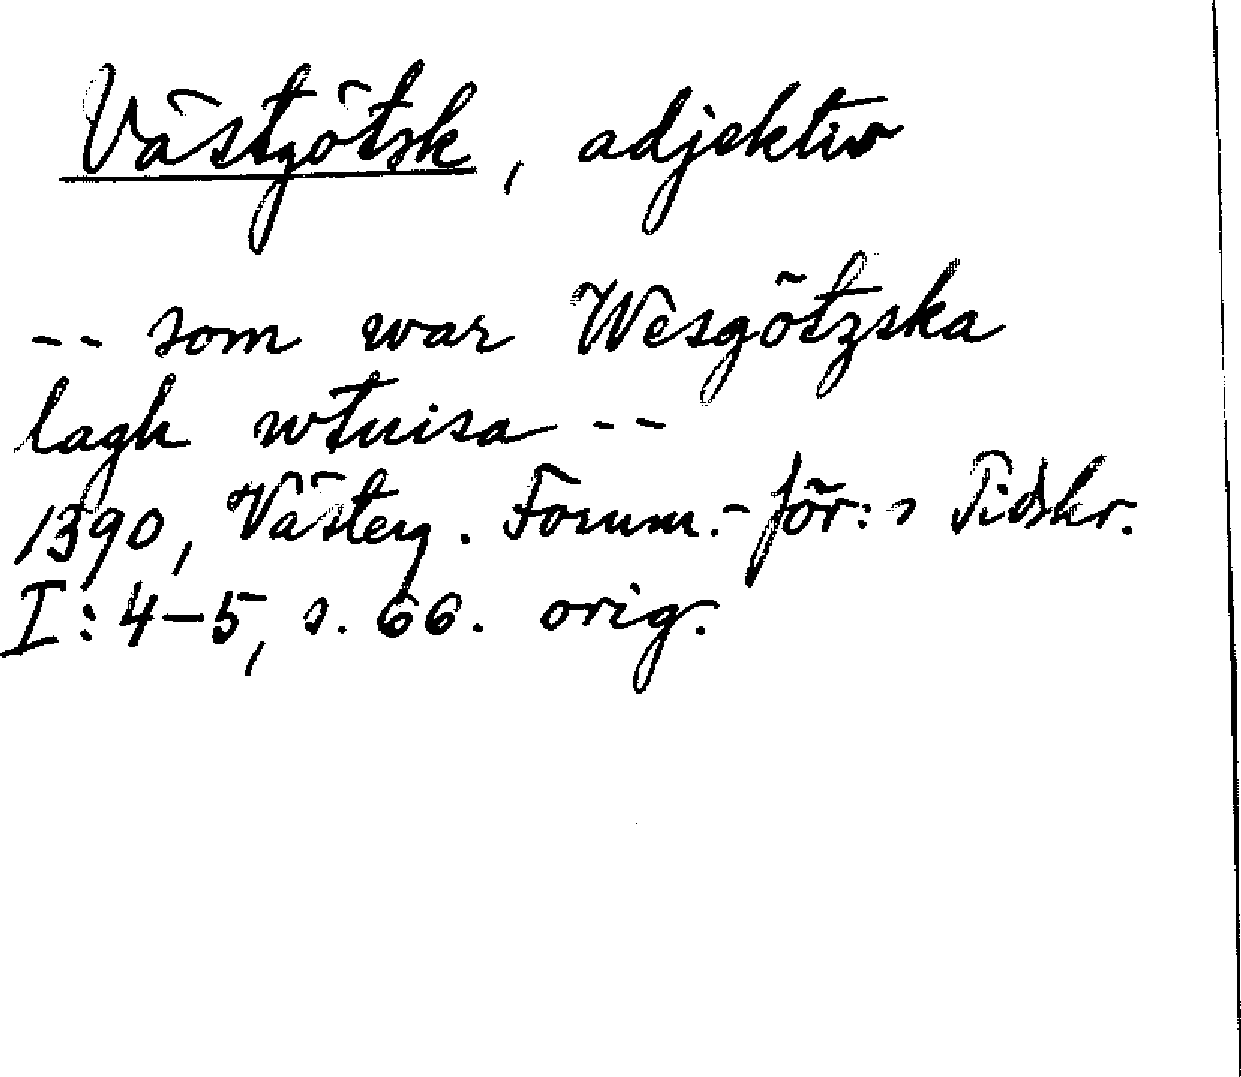 Västgötsk, adjektiv
-- som war Wesgötzska
lagh wtuisa --
1390, Västerg. Fornm.-för:s Tidskr.
I: 4-5, s. 66. orig.